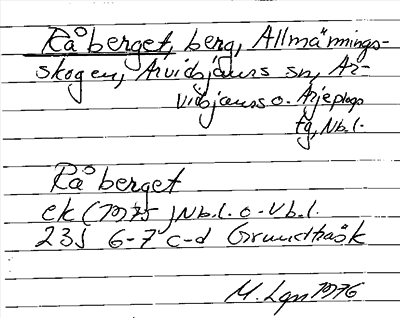 Råberget, berg, Allmännings-
skogen, Arvidsjaurs sn, Ar-
vidsjaurs o. Arjeplogs
tg, Nb.l.
Råberget
ek (1975) Nb.l. o. Vb.l.
23J 6-7 c-d Grundträsk
M. Lgn 1976